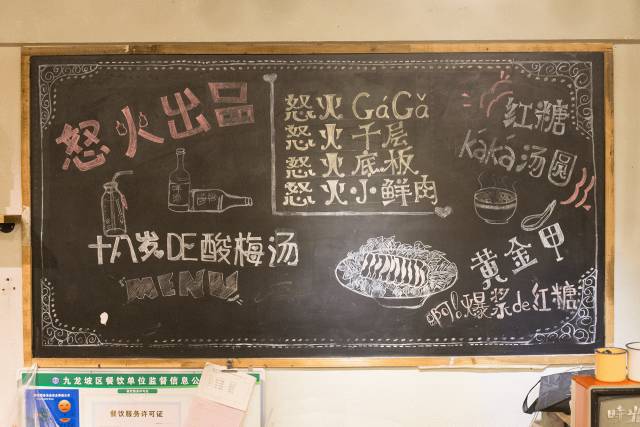 怒火出品
怒火 GáGǎ
怒火 千层
怒火 底板
怒火 小鲜肉
红糖
kaka汤圆
十八岁DE酸梅汤
MENU
黄金甲
啊!爆浆de红糖
九龙坡区餐饮单位监督信息公
餐饮服务许可证
時光